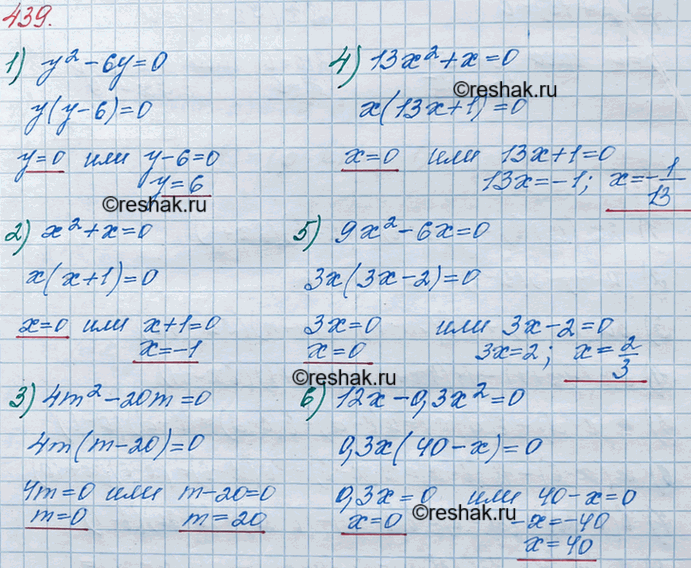 439.
1) y² - 6y = 0
y(y - 6) = 0
y = 0 или y - 6 = 0
y = 6
©reshak.ru
2) x² + x = 0
x(x + 1) = 0
x = 0 или x + 1 = 0
x = -1
3) 4m² - 20m = 0
4m(m - 20) = 0
4m = 0 или m - 20 = 0
m = 0 m = 20
4) 13x² + x = 0
©reshak.ru
x(13x + 1) = 0
x = 0 или 13x + 1 = 0
13x = -1; x = -1/13
5) 9x² - 6x = 0
3x(3x - 2) = 0
3x = 0 или 3x - 2 = 0
x = 0 3x = 2; x = 2/3
©reshak.ru
6) 12x - 0,3x² = 0
0,3x(40 - x) = 0
0,3x = 0 или 40 - x = 0
x = 0 -x = -40
©reshak.ru
x = 40